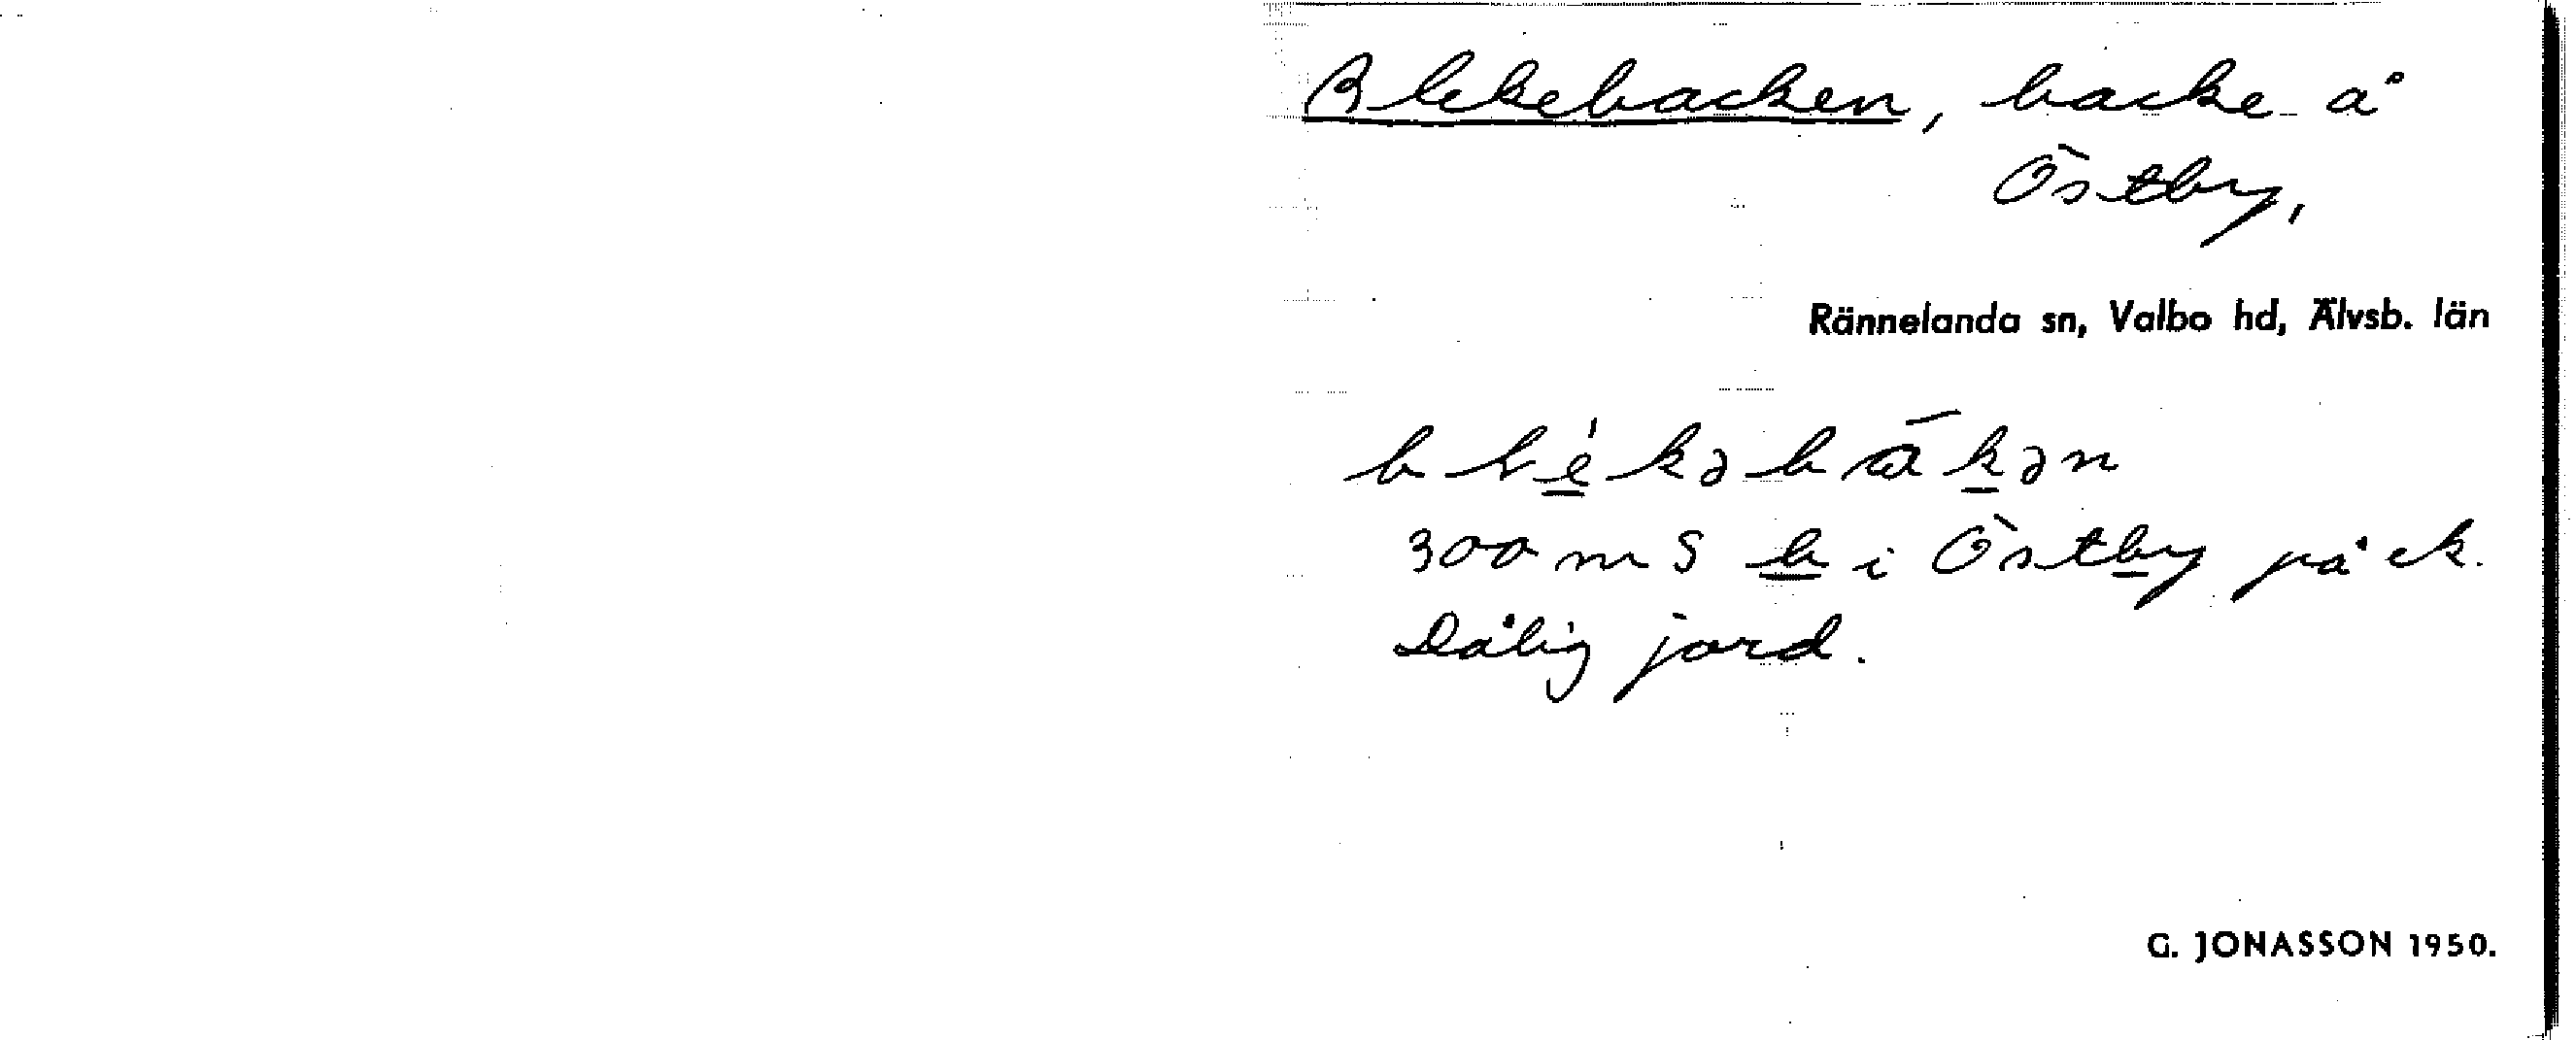 Blekebacken, backe å
Östby,
Rännelanda sn, Valbo hd, Älvsb. län
300 m S b i Östby på ek.
Dålig jord.
G. JONASSON 1950.